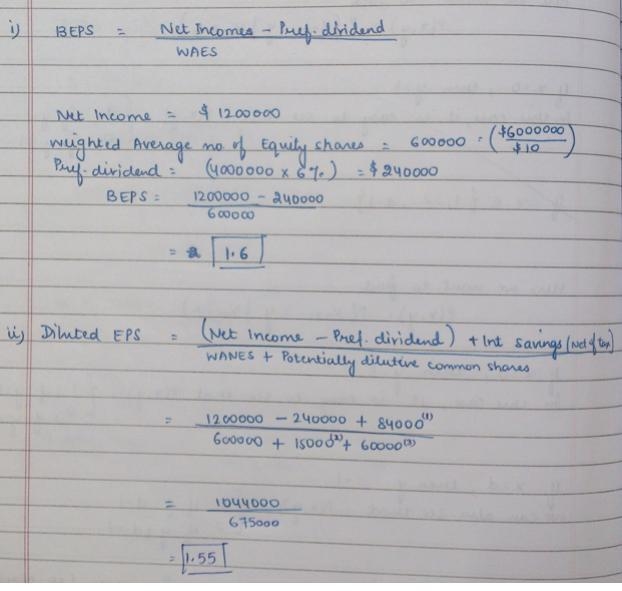 i) BEPS = Net Incomes - Pref. dividend
WAES
Net Income = $ 1200000
Weighted Average no. of Equity shares = 600000 = ($6000000
$10)
Pref. dividend = (4000000 x 6%) = $ 240000
BEPS = 1200000 - 240000
600000
= 1.6
ii) Diluted EPS = (Net Income - Pref. dividend) + Int savings (Net of tax)
WANES + Potentially dilutive common shares
= 1200000 - 240000 + 84000(1)
600000 + 15000(2) + 60000(3)
= 1044000
675000
= 1.55